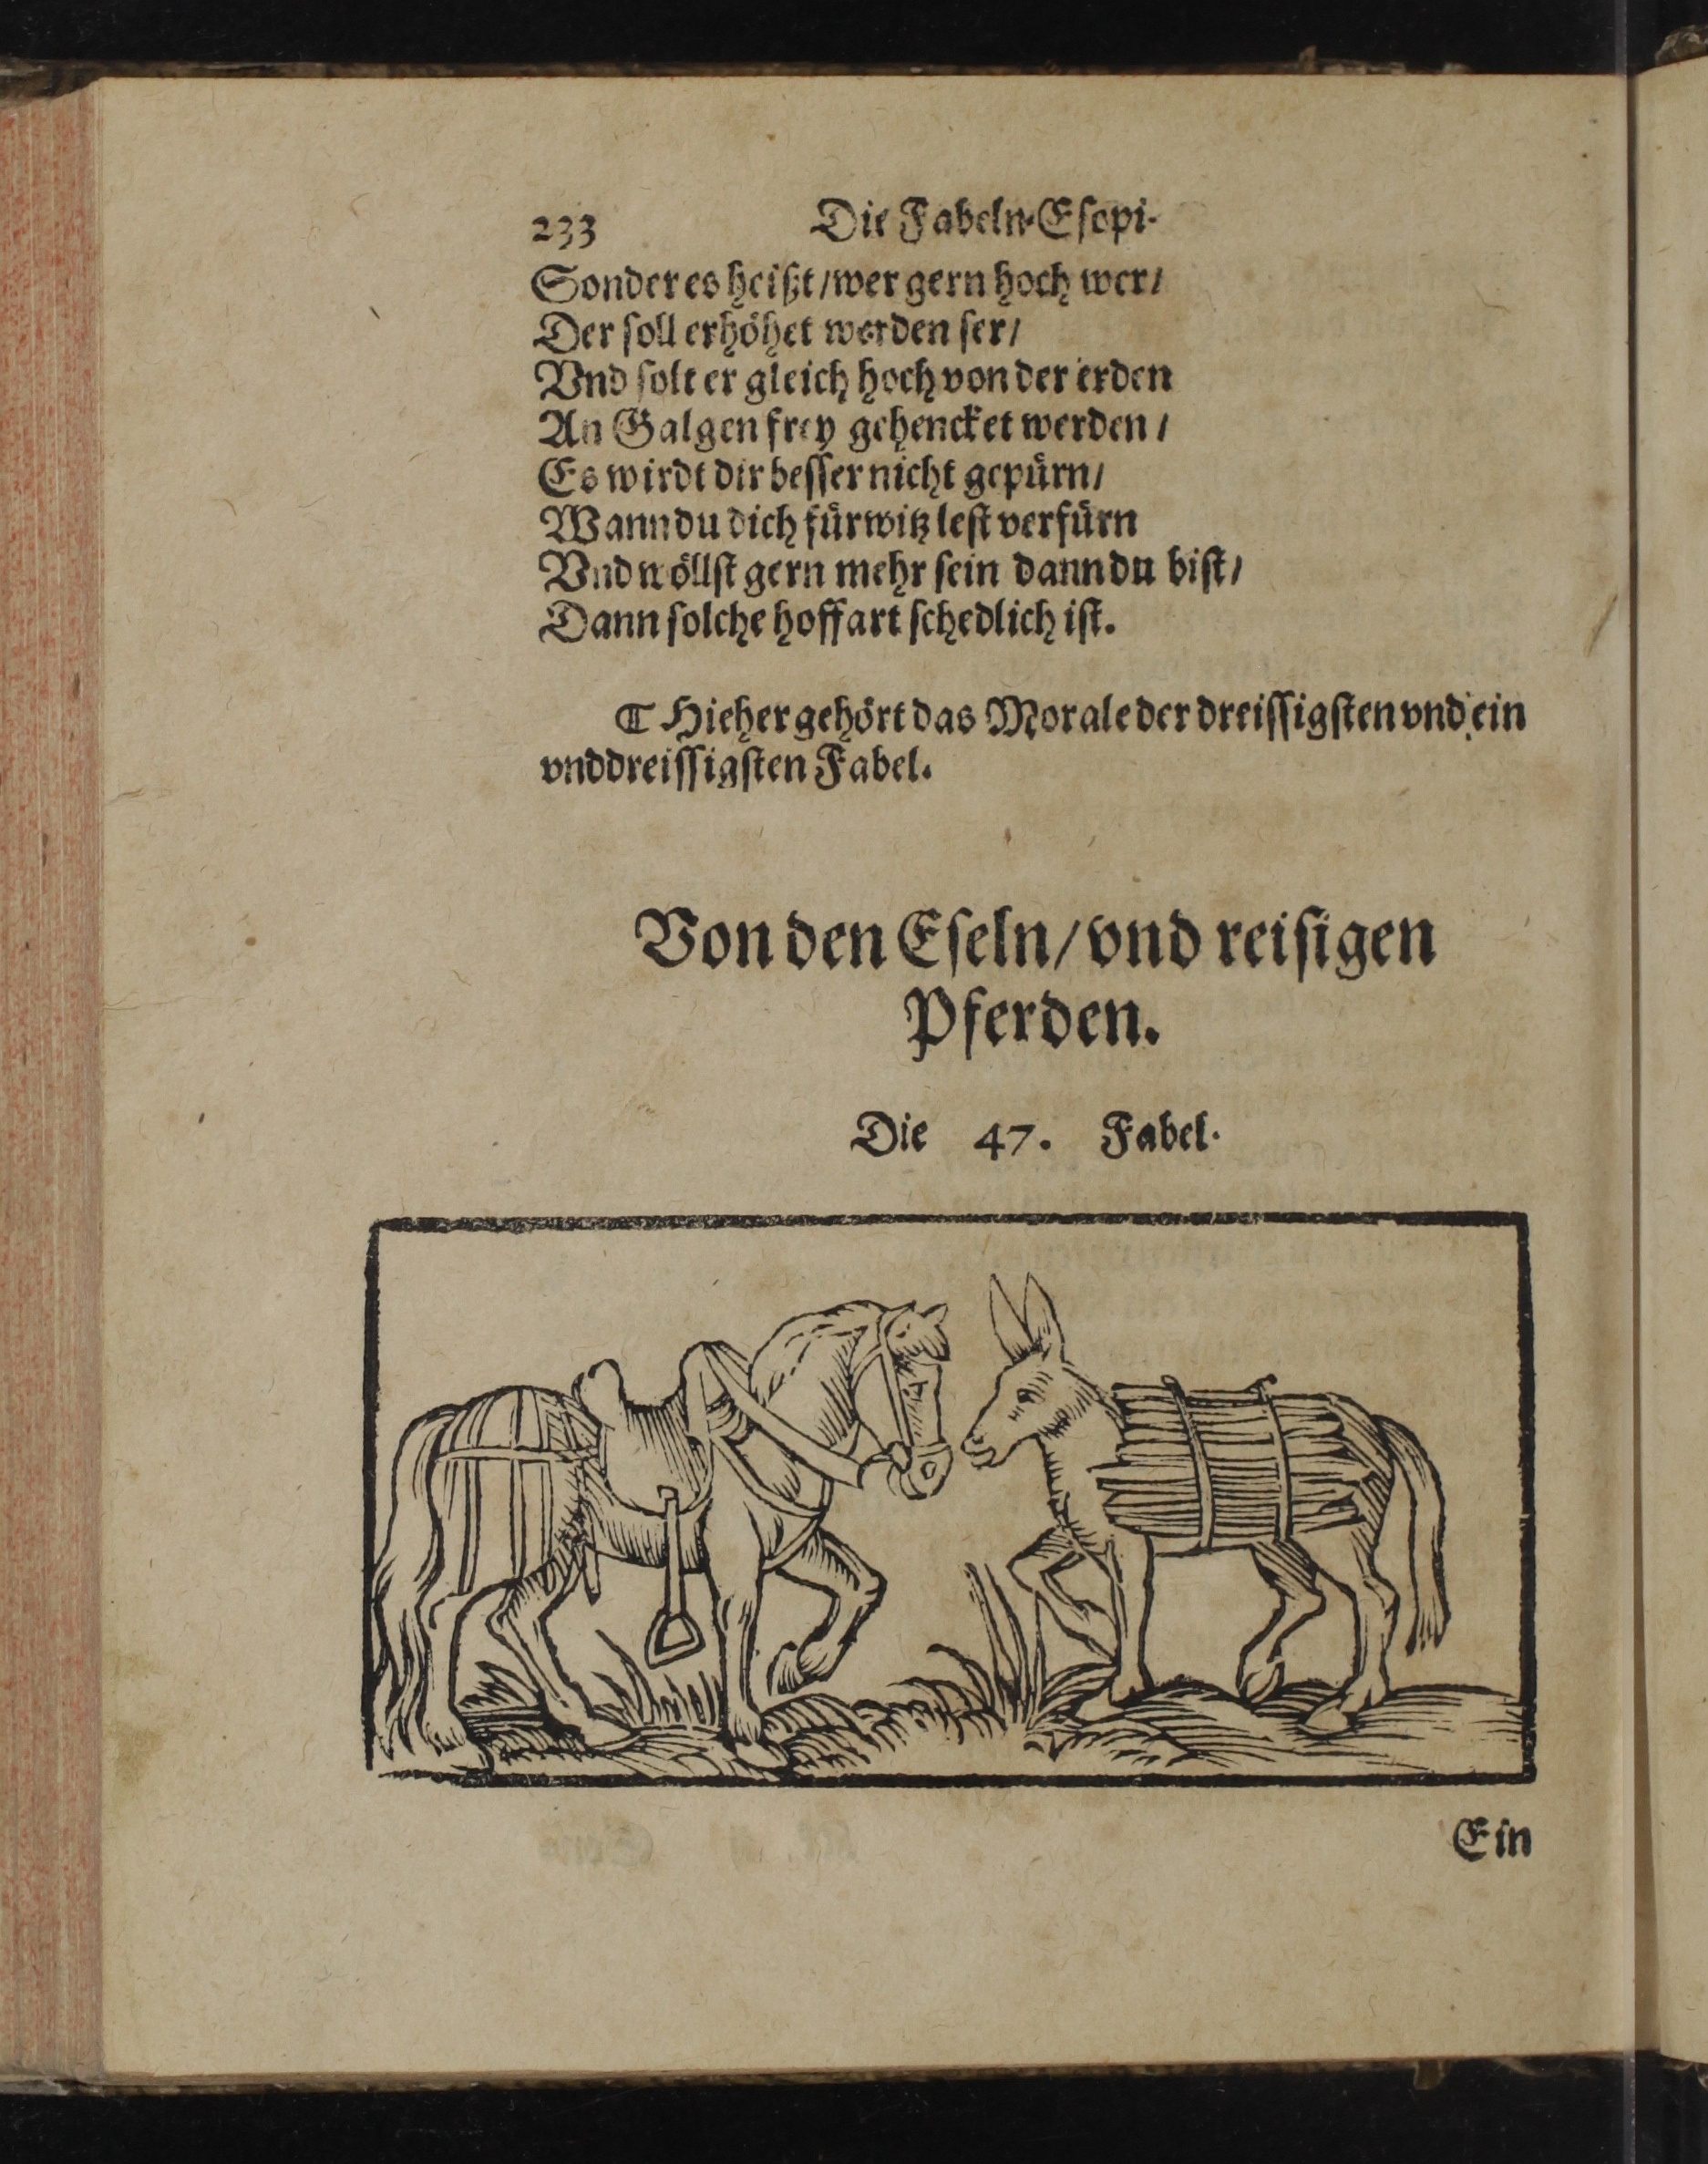 233 Die Fabeln Esopi.
Sonder es heißt / wer gern hoch wer /
Der soll erhöhet werden ser /
Vnd solt er gleich hoch von der erden
An Galgen frey gehencket werden /
Es wirdt dir besser nicht gepürn /
Wann du dich fürwitz lest verfürn
Vnd wöllst gern mehr sein dann du bist /
Dann solche hoffart schedlich ist.
⸿ Hieher gehört das Morale der dreissigsten vnd ein
vnddreissigsten Fabel.
Von den Eseln / vnd reisigen
Pferden.
Die 47. Fabel.
Ein